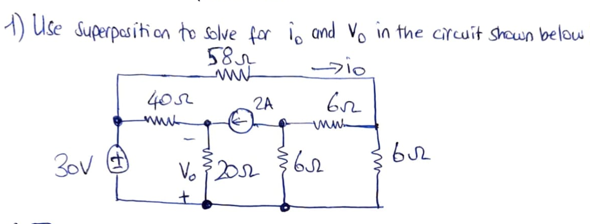 1) Use Superposition to solve for io and Vo in the circuit shown below
58Ω
→io
40Ω 2A 6Ω
30V Vo 20Ω 6Ω 6Ω